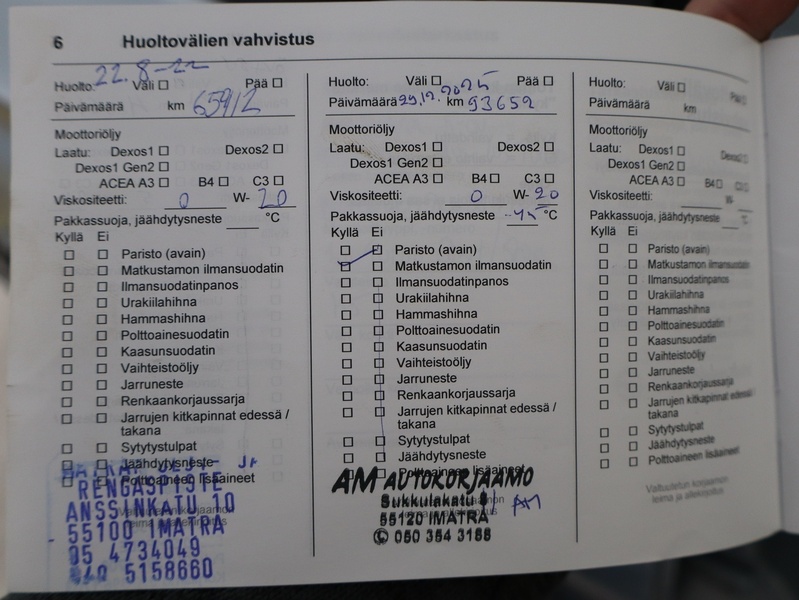 6 Huoltovälien vahvistus
22.8-22
Huolto: Väli ☐ Pää ☐
Päivämäärä km 65912
Moottoriöljy
Laatu: Dexos1 ☐ Dexos2 ☐
Dexos1 Gen2 ☐
ACEA A3 ☐ B4 ☐ C3 ☐
Viskositeetti: 0 W- 20
Pakkassuoja, jäähdytysneste °C
Kyllä Ei
☐ ☐ Paristo (avain)
☐ ☐ Matkustamon ilmansuodatin
☐ ☐ Ilmansuodatinpanos
☐ ☐ Urakiilahihna
☐ ☐ Hammashihna
☐ ☐ Polttoainesuodatin
☐ ☐ Kaasunsuodatin
☐ ☐ Vaihteistoöljy
☐ ☐ Jarruneste
☐ ☐ Renkaankorjaussarja
☐ ☐ Jarrujen kitkapinnat edessä /
takana
☐ ☐ Sytytystulpat
☐ ☐ Jäähdytysneste
☐ ☐ Polttoaineen lisäaineet
RENGASPISTE
ANSSINKATU 10
55100 IMATRA
05 4734049
5158660
Huolto: Väli ☐ Pää ☐
Päivämäärä 29.12.2025 km 93652
Moottoriöljy
Laatu: Dexos1 ☐ Dexos2 ☐
Dexos1 Gen2 ☐
ACEA A3 ☐ B4 ☐ C3 ☐
Viskositeetti: 0 W- 20
Pakkassuoja, jäähdytysneste °C
Kyllä Ei
☐ ☐ Paristo (avain)
☐ ☐ Matkustamon ilmansuodatin
☐ ☐ Ilmansuodatinpanos
☐ ☐ Urakiilahihna
☐ ☐ Hammashihna
☐ ☐ Polttoainesuodatin
☐ ☐ Kaasunsuodatin
☐ ☐ Vaihteistoöljy
☐ ☐ Jarruneste
☐ ☐ Renkaankorjaussarja
☐ ☐ Jarrujen kitkapinnat edessä /
takana
☐ ☐ Sytytystulpat
☐ ☐ Jäähdytysneste
☐ ☐ Polttoaineen lisäaineet
AM AUTOKORJAAMO
Sukkulakatu 8
55120 IMATRA AM
✆ 050 354 3188
Huolto: Väli ☐ Pää ☐
Päivämäärä km
Moottoriöljy
Laatu: Dexos1 ☐ Dexos2 ☐
Dexos1 Gen2 ☐
ACEA A3 ☐ B4 ☐ C3 ☐
Viskositeetti: W-
Pakkassuoja, jäähdytysneste °C
Kyllä Ei
☐ ☐ Paristo (avain)
☐ ☐ Matkustamon ilmansuodatin
☐ ☐ Ilmansuodatinpanos
☐ ☐ Urakiilahihna
☐ ☐ Hammashihna
☐ ☐ Polttoainesuodatin
☐ ☐ Kaasunsuodatin
☐ ☐ Vaihteistoöljy
☐ ☐ Jarruneste
☐ ☐ Renkaankorjaussarja
☐ ☐ Jarrujen kitkapinnat edessä /
takana
☐ ☐ Sytytystulpat
☐ ☐ Jäähdytysneste
☐ ☐ Polttoaineen lisäaineet
Valtuutetun korjaamon
leima ja allekirjoitus